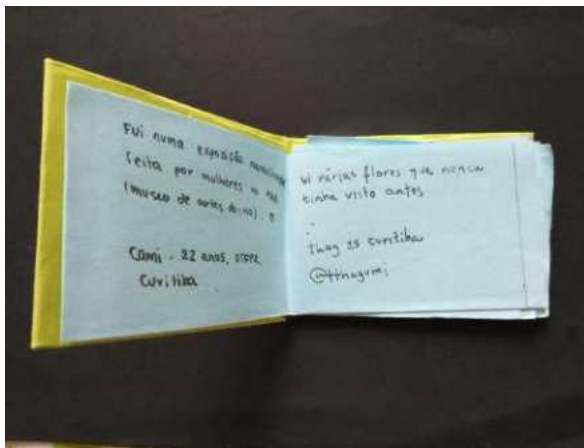 Fui numa exposição
feita por mulheres no
(museu de artes
Cami - 22 anos,
Curitiba
vi várias flores que nunca
tinha visto antes
:
thay 25 curitiba